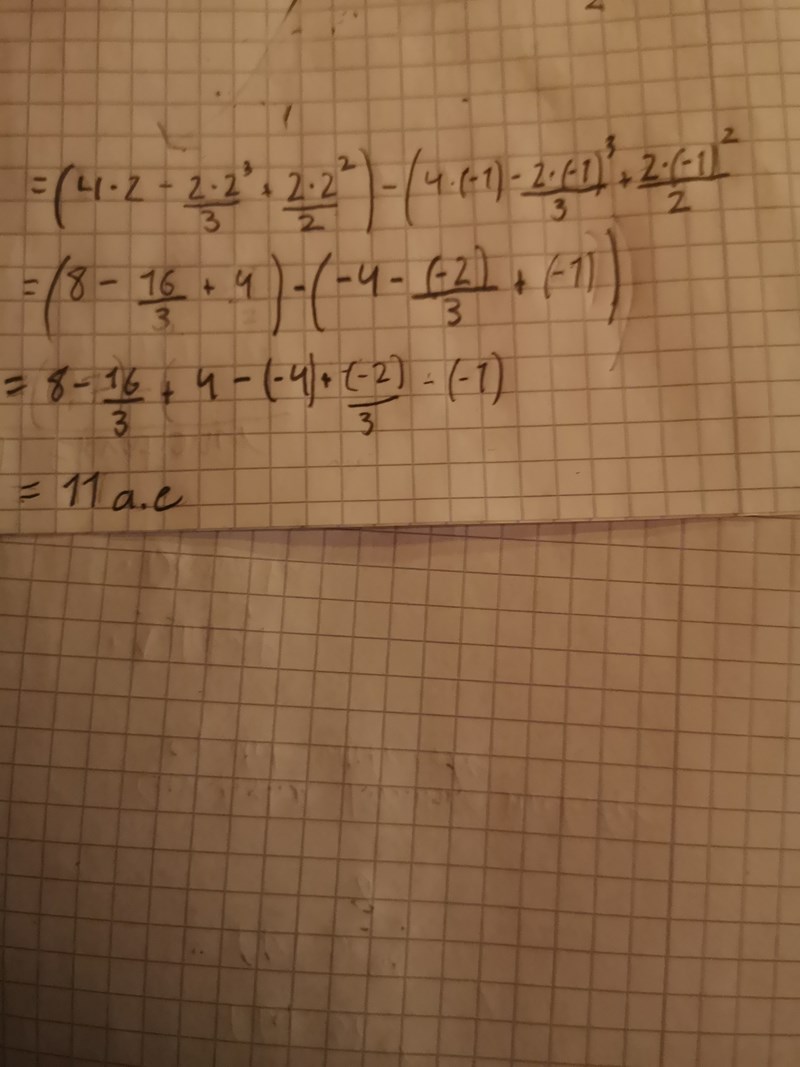 = (4·2 - 2·2³/3 + 2·2²/2) - (4·(-1) - 2·(-1)³/3 + 2·(-1)²/2)
= (8 - 16/3 + 4) - (-4 - (-2)/3 + (-1))
= 8 - 16/3 + 4 - (-4) + (-2)/3 - (-1)
= 11 a.e